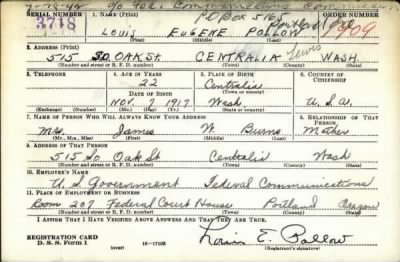 SERIAL NUMBER 1. NAME (Print) ORDER NUMBER
3718 P O Box 5165
LOUIS EUGENE POLLOW
(First) (Middle) (Last)
2. ADDRESS (Print)
515 SO. OAK ST. CENTRALIA Lewis WASH.
(Number and street or R. F. D. number) (Town) (County) (State)
3. TELEPHONE 4. AGE IN YEARS 5. PLACE OF BIRTH 6. COUNTRY OF CITIZENSHIP
22 Centralia
DATE OF BIRTH (Town or county)
NOV. 7 1917 Wash U.S.A.
(Exchange) (Number) (Mo.) (Day) (Yr.) (State or country)
7. NAME OF PERSON WHO WILL ALWAYS KNOW YOUR ADDRESS 8. RELATIONSHIP OF THAT PERSON
Mrs. James W. Burns Mother
(Mr., Mrs., Miss) (First) (Middle) (Last)
9. ADDRESS OF THAT PERSON
515 So Oak St Centralia Wash
(Number and street or R. F. D. number) (Town) (County) (State)
10. EMPLOYER'S NAME
U. S. Government Federal Communications
11. PLACE OF EMPLOYMENT OR BUSINESS
Room 207 Federal Court House Portland Oregon
(Number and street or R. F. D. number) (Town) (County) (State)
I AFFIRM THAT I HAVE VERIFIED ABOVE ANSWERS AND THAT THEY ARE TRUE.
REGISTRATION CARD
D. S. S. Form 1 (over) 16—17105 Louis E. Pollow
(Registrant's signature)